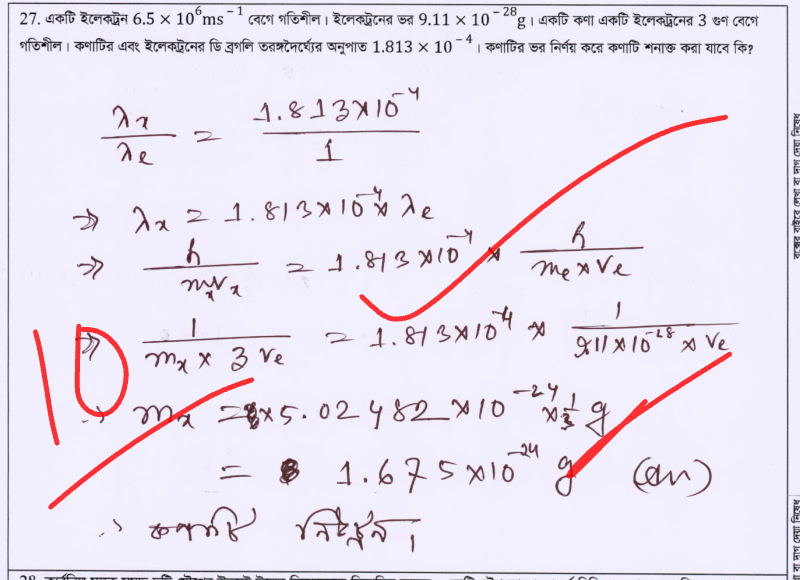 27. একটি ইলেকট্রন 6.5 × 10⁶ms⁻¹ বেগে গতিশীল। ইলেকট্রনের ভর 9.11 × 10⁻²⁸g। একটি কণা একটি ইলেকট্রনের 3 গুণ বেগে
গতিশীল। কণাটির এবং ইলেকট্রনের ডি ব্রগলি তরঙ্গদৈর্ঘ্যের অনুপাত 1.813 × 10⁻⁴। কণাটির ভর নির্ণয় করে কণাটি শনাক্ত করা যাবে কি?
λx/λe = 1.813×10⁻⁴/1
⇒ λx = 1.813×10⁻⁴ × λe
⇒ h/mxvx = 1.813×10⁻⁴ × h/me×ve
⇒ 1/mx × 3ve = 1.813×10⁻⁴ × 1/9.11×10⁻²⁸ × ve
10
∴ mx = 5.02482×10⁻²⁴ × 1/3 g
= 1.675×10⁻²⁴ g (an)
∴ কণাটি নিউট্রন।
বক্সের বাইরে লেখা বা দাগ দেয়া নিষেধ
বা দাগ দেয়া নিষেধ